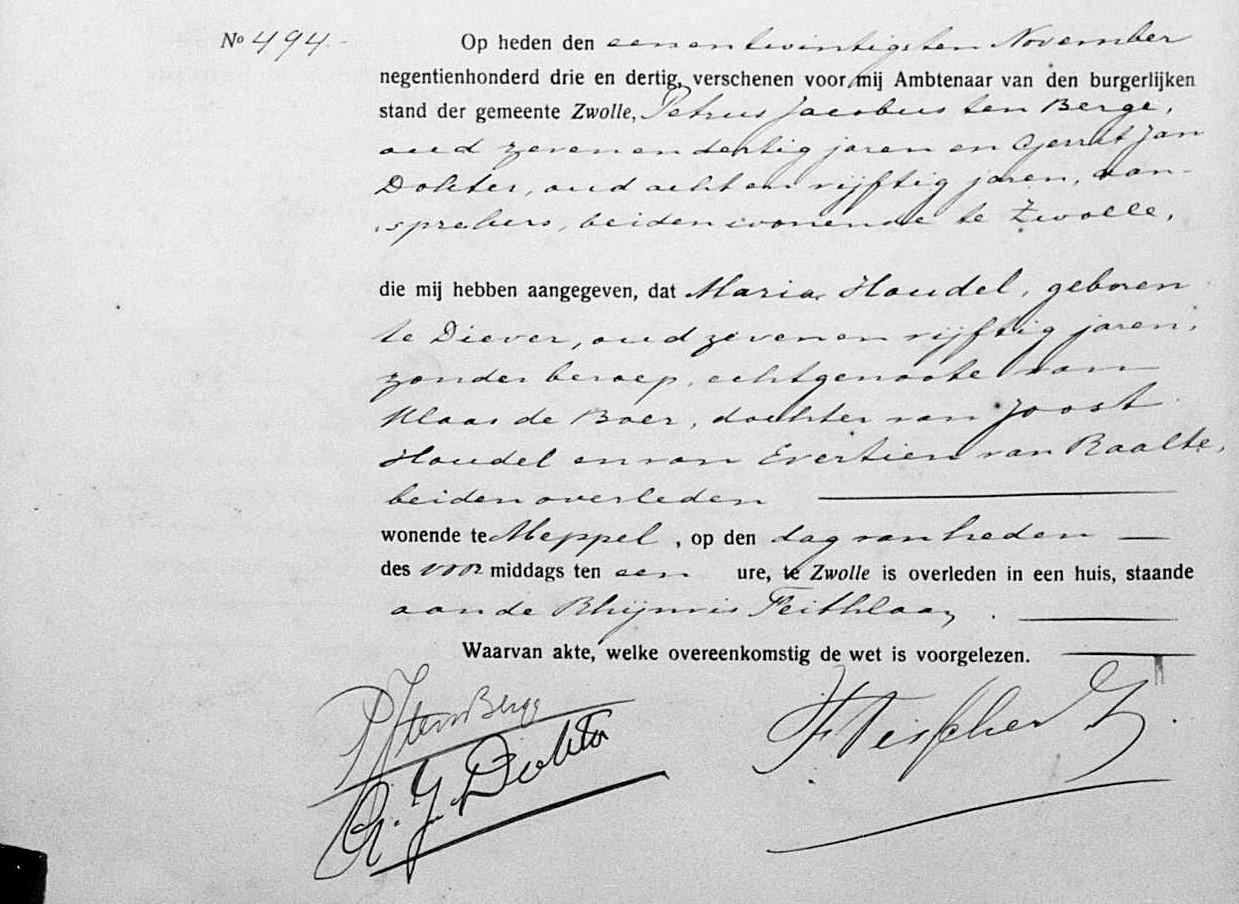 No 494.-
Op heden den eenentwintigsten November
negentienhonderd drie en dertig, verschenen voor mij Ambtenaar van den burgerlijken
stand der gemeente Zwolle, Petrus Jacobus ten Berge,
oud zevenendertig jaren en Gerrit Jan
Dokter, oud achtenvijftig jaren, aan-
sprekers, beiden wonende te Zwolle,
die mij hebben aangegeven, dat Maria Houdel, geboren
te Diever, oud zevenenvijftig jaren,
zonder beroep, echtgenoote van
Klaas de Boer, dochter van Joost
Houdel en van Evertien van Raalte,
beiden overleden
wonende te Meppel, op den dag van heden
des voor middags ten een ure, te Zwolle is overleden in een huis, staande
aan de Rhijnvis Feithlaan.
Waarvan akte, welke overeenkomstig de wet is voorgelezen.
PJ ten Berge
G. J. Dokter